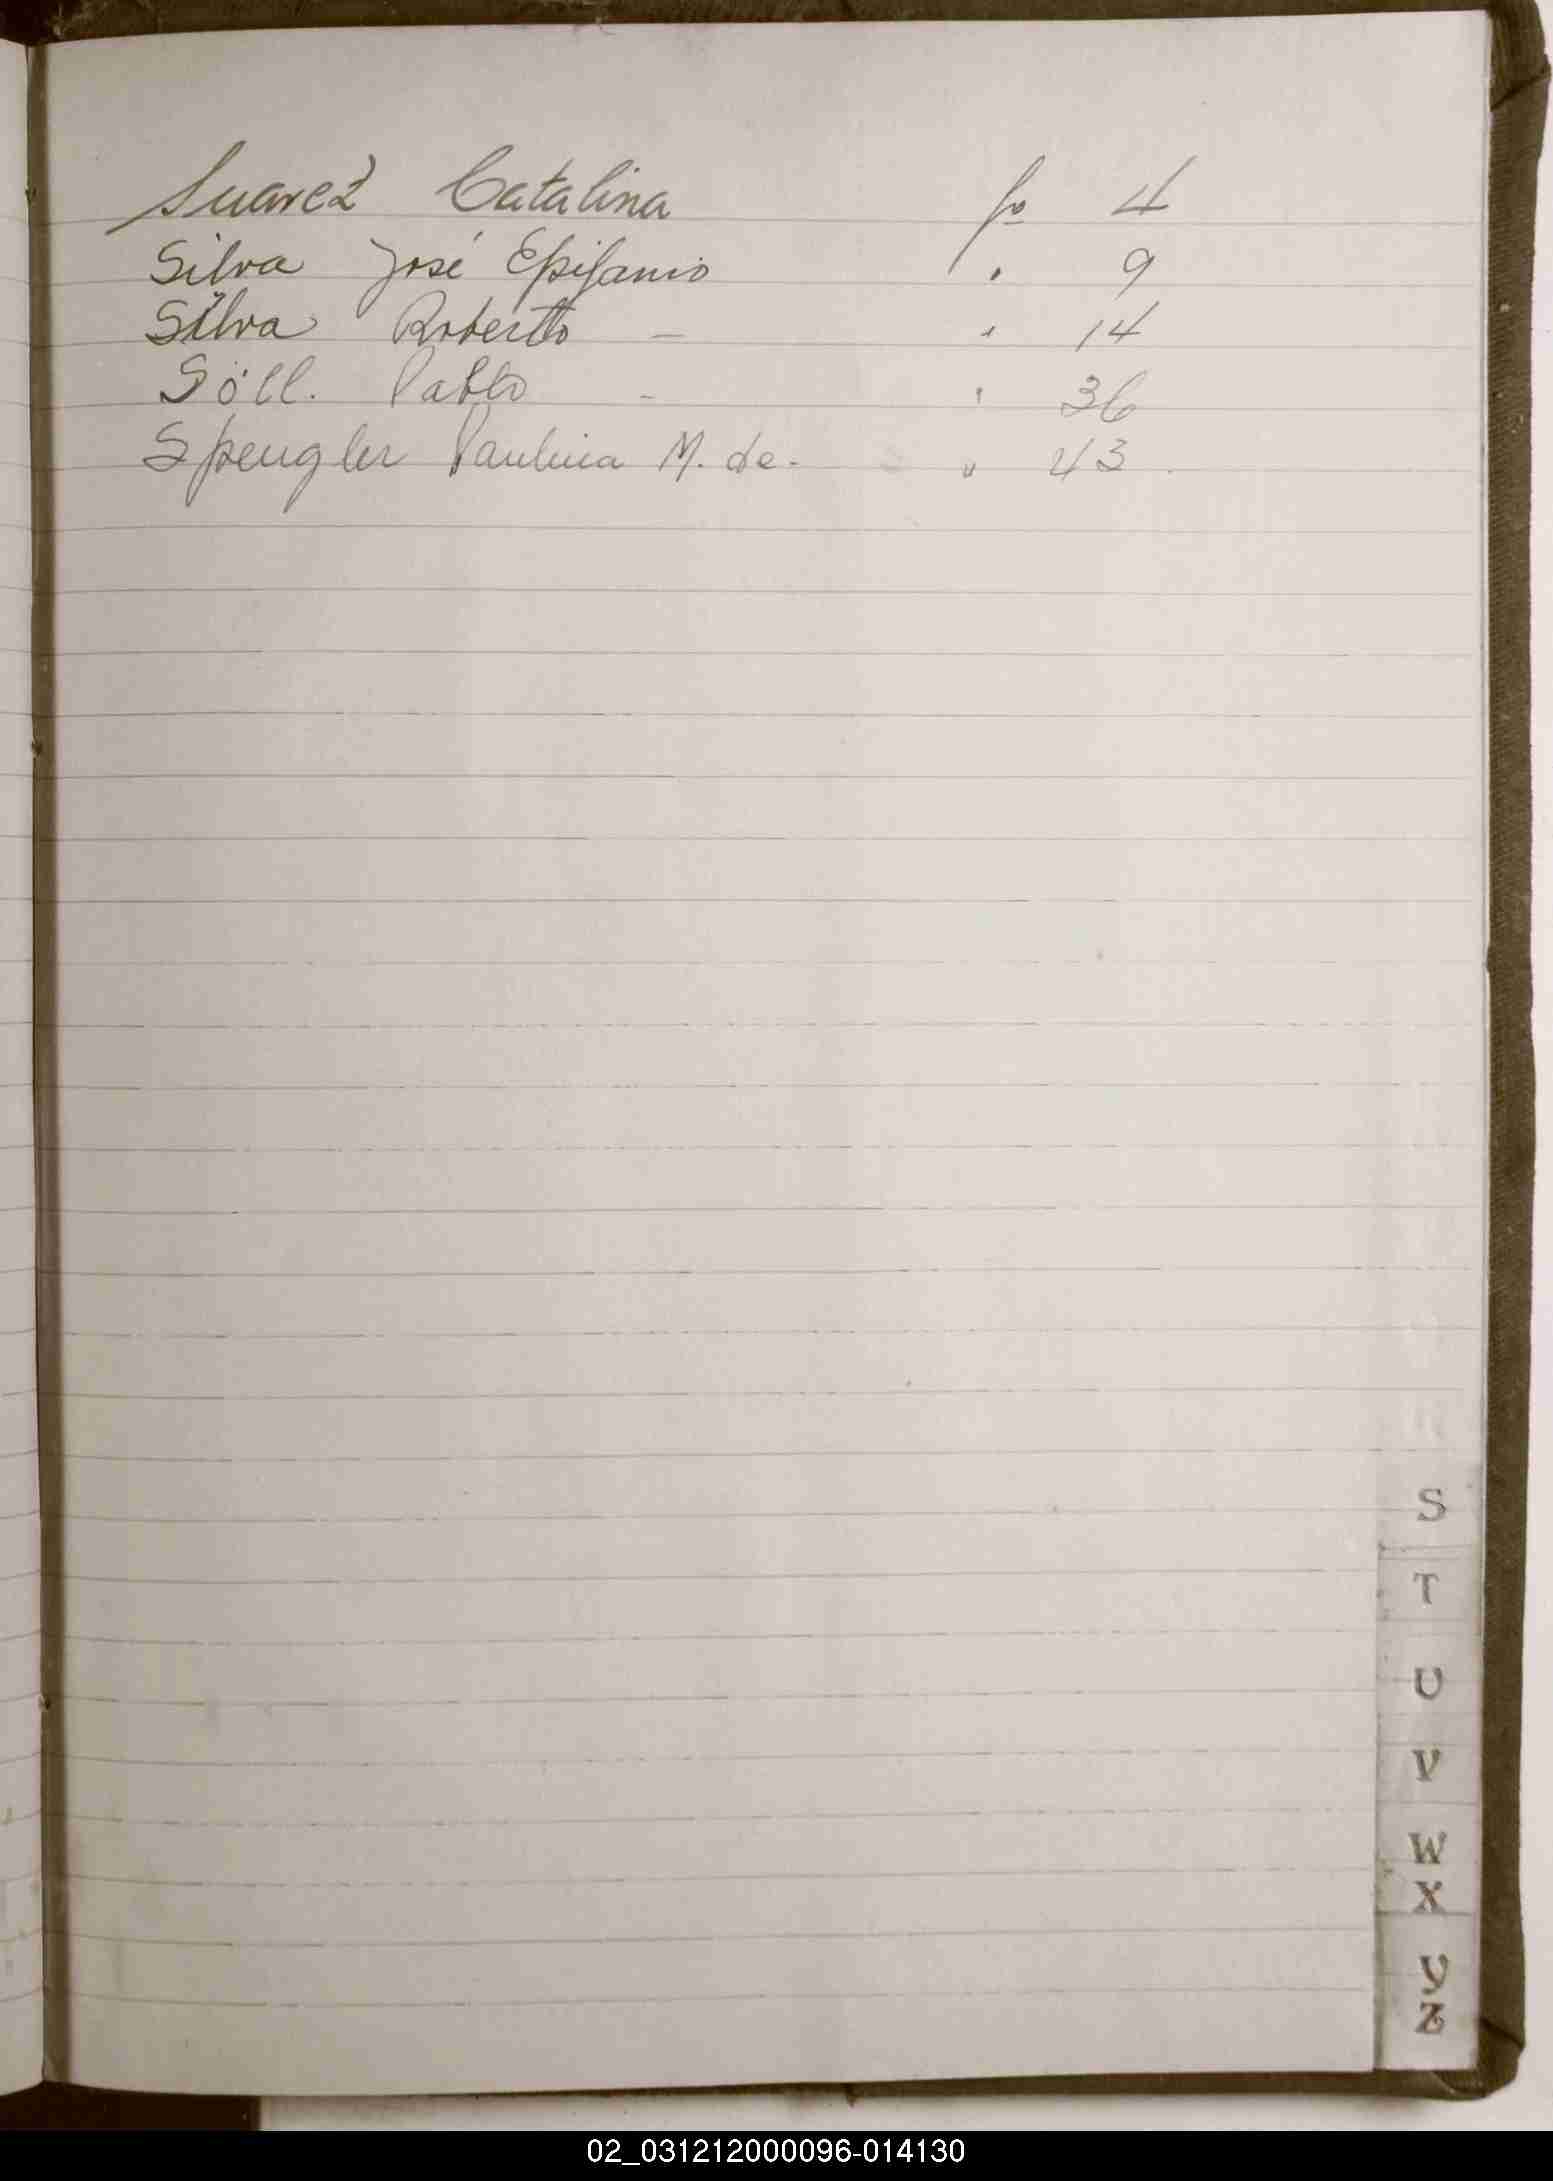 Suarez Catalina fo 4
Silva José Epifanio " 9
Silva Roberto - " 14
Söll. Pablo - " 36
Spengler Paulina M. de. " 43.
S
T
U
V
W
X
Y
Z
02_031212000096-014130